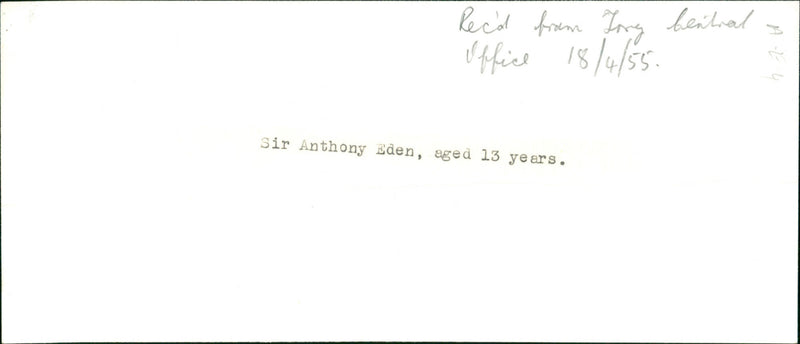 Rec'd from Tory Central
Office 18/4/55.
Sir Anthony Eden, aged 13 years.